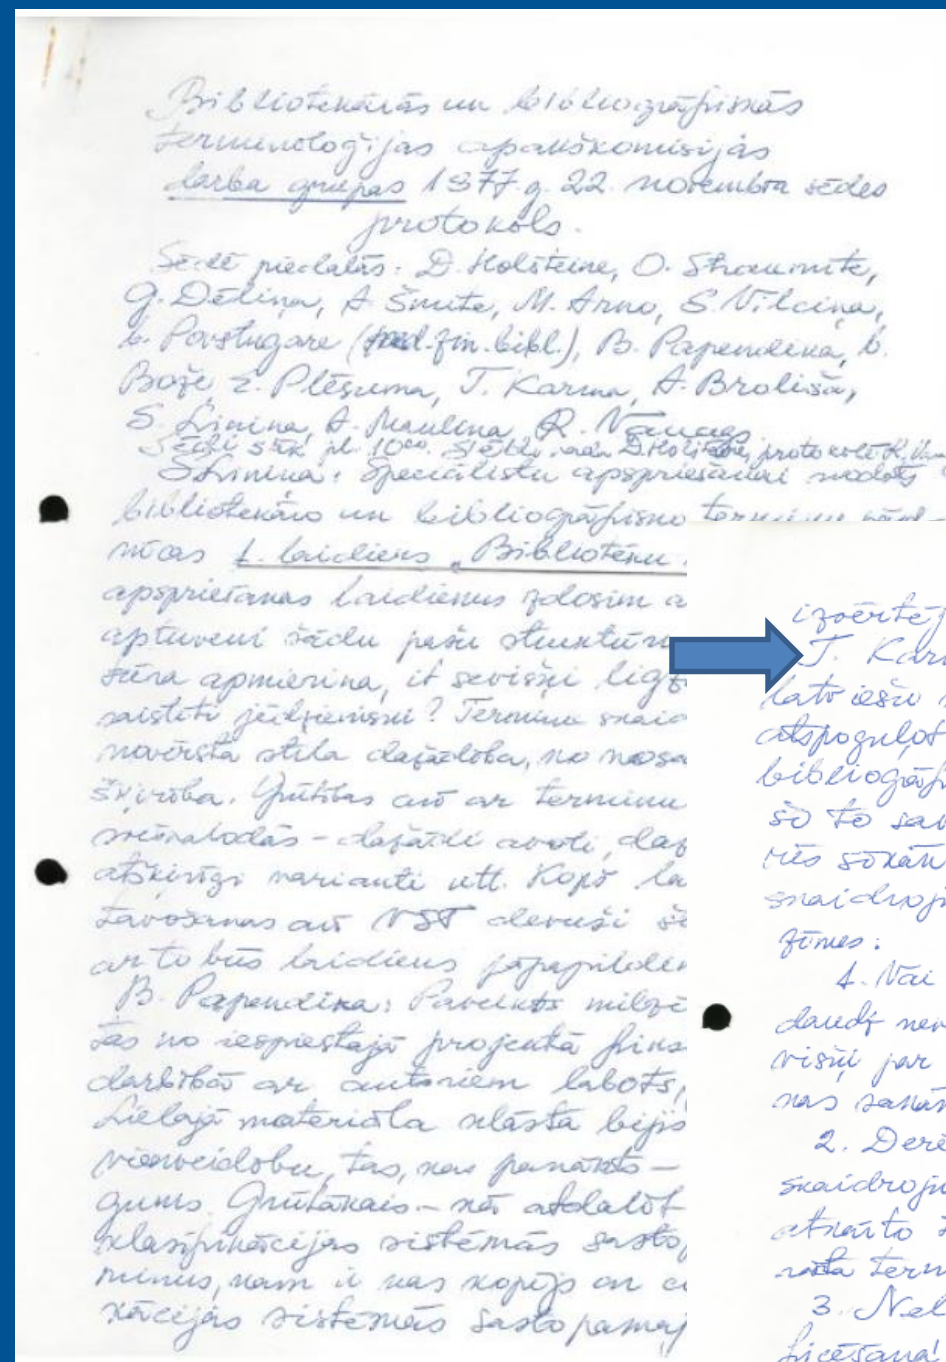 Bibliotekārās un bibliogrāfiskās
terminoloģijas apakškomisijas
darba grupas 1977. g. 22. novembra sēdes
protokols.
Sēdē piedalās: D. Holšteine, O. Straumīte,
G. Dēliņa, A. Šmite, M. Arno, S. Vilciņa,
b. (fin. bibl.), B. Papendika, b.
Bože, Z. Plēsuma, T. Karma, A. Broliša,
S. Liniņa, A. Mauliņa, R. Vanags
Sēdi sāk pl. 10⁰⁰. Sēdi vada D. Holšteine, protokolē R.
S. Liniņa: Speciālistu apspriešanai nodots
bibliotekāro un bibliogrāfisko terminu
nīcas 1. laidiens „Bibliotēku
apspriešanas laidienus
aptuveni šādu pašu struktūru
tūra apmierina, it sevišķi
saistīti jēdzieniski? Terminu skaid
novērsta stila dažādība, no nosa
šķirība. Grūtības arī ar terminu
- dažādi avoti, daž
atšķirīgi varianti utt. Kopš la
arī VST devuši
ar to būs laidiens jāpapildin
B. Papendika: Paveikts milzī
tas no iespiestajā projektā
darbībā ar autoriem labots,
Lielajā materiāla klāstā bijis
vienveidību, tas, kas panākts –
gums. Grūtākais – kā atdalīt
klasifikācijas sistēmās sasto
minus, kam ir kas kopējs
kācijas sistēmās sastopamaj
izvērtēj
T. Kar
latviešu
atspoguļot
bibliogrāf
šo to sa
skaidroj
zīmes:
1. Vai
daudz nev
višķi par
nas
2. Derē
skaidroju
term
3. Nel
ficēšana!